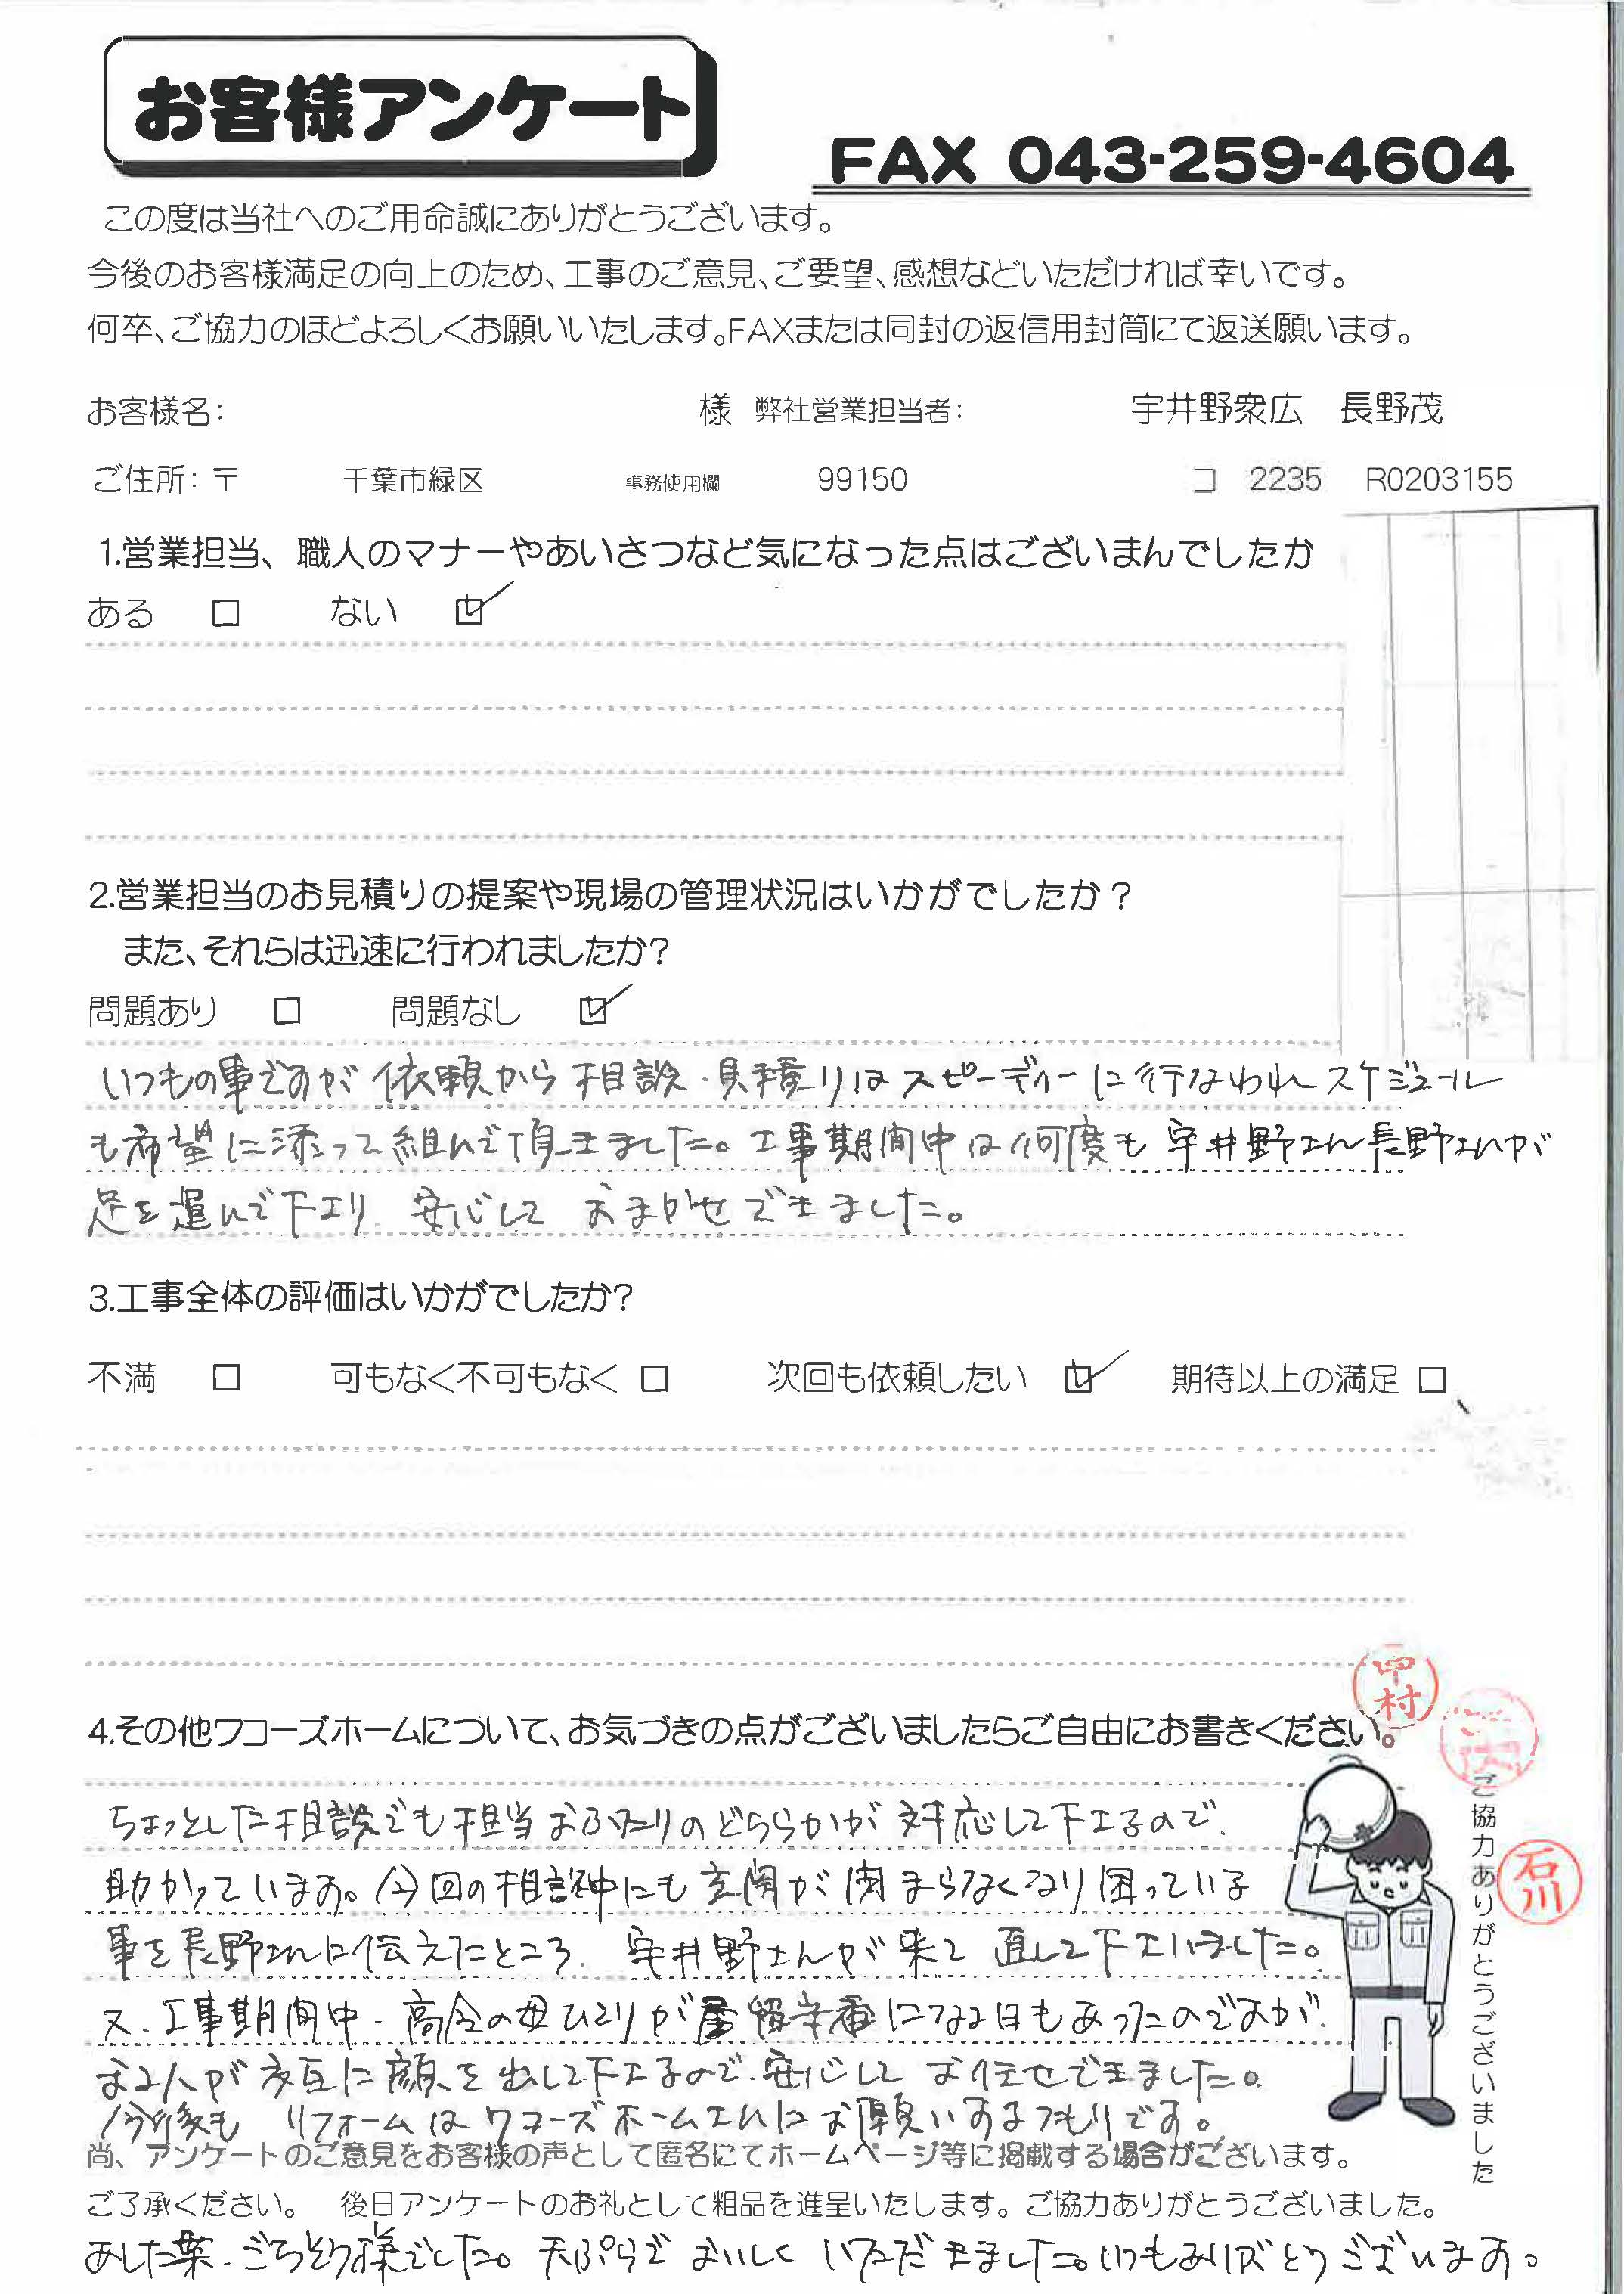 お客様アンケート
FAX 043-259-4604
この度は当社へのご用命誠にありがとうございます。
今後のお客様満足の向上のため、工事のご意見、ご要望、感想などいただければ幸いです。
何卒、ご協力のほどよろしくお願いいたします。FAXまたは同封の返信用封筒にて返送願います。
お客様名: 様 弊社営業担当者: 宇井野衆広 長野茂
ご住所: 〒 千葉市緑区 事務使用欄 99150 コ 2235 R0203155
1.営業担当、職人のマナーやあいさつなど気になった点はございまんでしたか
ある □ ない ☑
2.営業担当のお見積りの提案や現場の管理状況はいかがでしたか?
また、それらは迅速に行われましたか?
問題あり □ 問題なし ☑
いつもの事ですが 依頼から 相談・見積りは スピーディーに行なわれ スケジュール
も希望に添って組んで頂きました。工事期間中は何度も 宇井野さん長野さんが
足を運んで下さり 安心して おまかせできました。
3.工事全体の評価はいかがでしたか?
不満 □ 可もなく不可もなく □ 次回も依頼したい ☑ 期待以上の満足 □
中村
4.その他ワコーズホームについて、お気づきの点がございましたらご自由にお書きください。
ちょっとした相談でも 担当 おふたりのどちらかが 対応して下さるので、
助かっています。今回の相談中にも 玄関が 閉まらなくなり 困っている
事を長野さんに伝えたところ、宇井野さんが 来て 直して下さいました。
又、工事期間中、高令の母ひとりが 留守番になる日もあったのですが、
お2人が 交互に 顔を出して下さるので、安心して お任せできました。
今後も リフォームは ワコーズホームさんに お願いするつもりです。
ご協力ありがとうございました
石川
尚、アンケートのご意見をお客様の声として匿名にてホームページ等に掲載する場合がございます。
ご了承ください。 後日アンケートのお礼として粗品を進呈いたします。ご協力ありがとうございました。
あした葉、ごちそう様でした。天ぷらで おいしく いただきました。いつもありがとうございます。